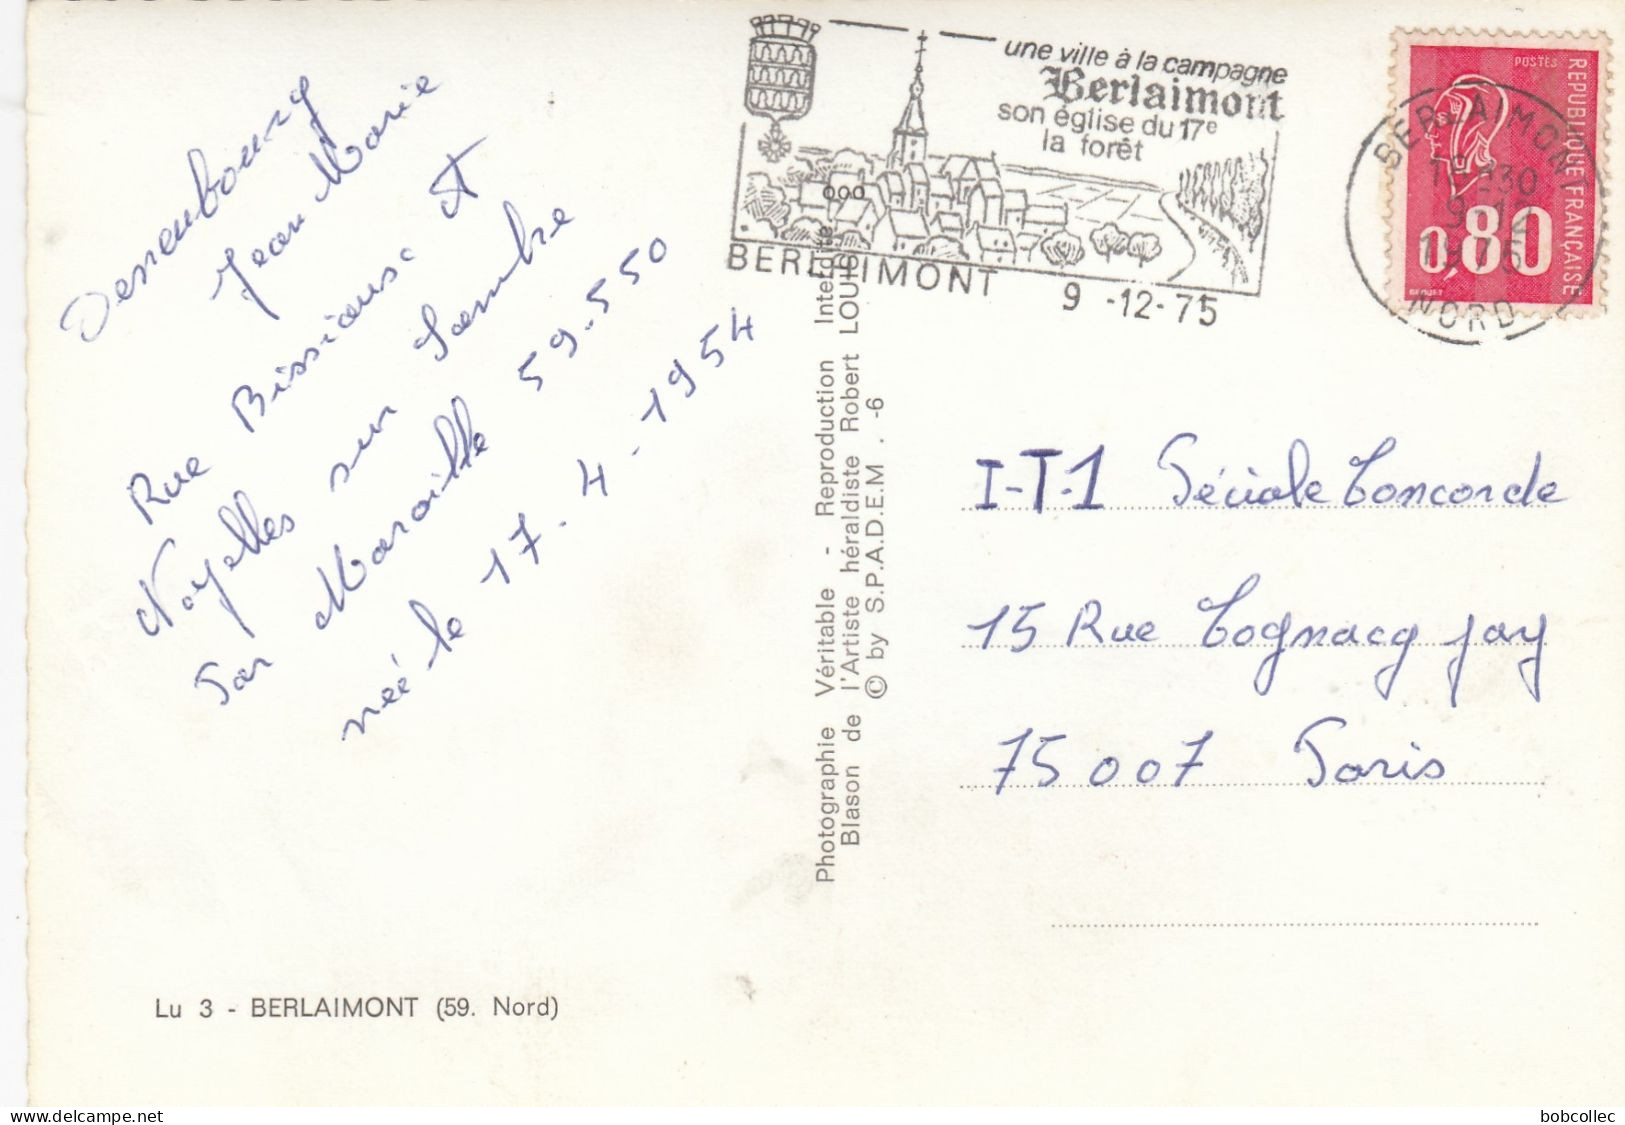 Jean Marie
Rue
Noyelles sur Sambre
Par Maroille 59-550
née le 17-4-1954
une ville à la campagne
Berlaimont
son église du 17e
la forêt
BERLAIMONT
9-12-75
BERLAIMONT
18 H30
9-12
1975
NORD
POSTES
REPUBLIQUE FRANÇAISE
0,80
BEQUET
Photographie Véritable - Reproduction Interdite
Blason de l'Artiste héraldiste Robert LOUIS
© by S.P.A.D.E.M. -6
I-T-1 Péciale Concorde
15 Rue Cognacq jay
75007 Paris
Lu 3 - BERLAIMONT (59. Nord)
bobcollec